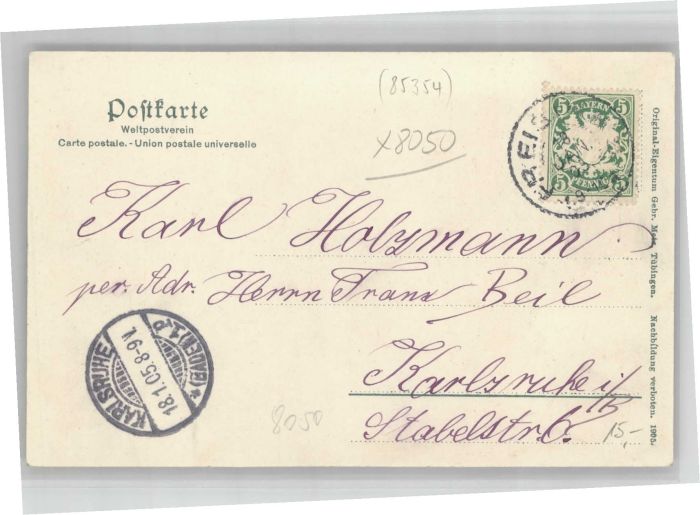 (85354)
Postkarte
Weltpostverein
Carte postale. - Union postale universelle
x8050
5 BAYERN 5
5 PFENNIG 5
FREIS
JAN.
Karl Holzmann
per. Adr. Herrn Franz Beil
Karlsruhe i/B
Stabelstr. 6.
KARLSRUHE (BADEN) 1.P *
18.1.05.8-9V.
8050
15,-
Original-Eigentum Gebr. Metz, Tübingen. Nachbildung verboten. 1905.